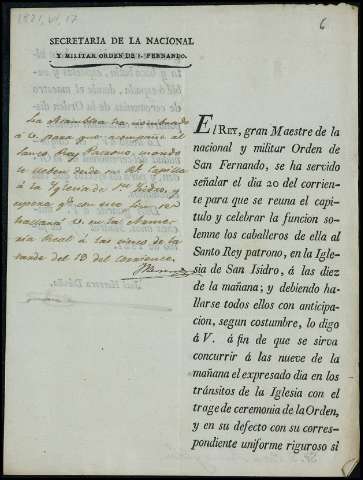 1821, VI, 17
6
SECRETARIA DE LA NACIONAL
Y MILITAR ORDEN DE S. FERNANDO.
La Asamblea ha nombrado
á V. para que acompañe al
Santo Rey Patrono, cuando
le lleven desde su Rl. Capilla
á la Iglesia de Sn. Isidro, y
espera qe. con este fin se
hallará V. en la
á las cinco de la
tarde del 19 del corriente.
EL REY, gran Maestre de la
nacional y militar Orden de
San Fernando, se ha servido
señalar el dia 20 del corrien-
te para que se reuna el capí-
tulo y celebrar la funcion so-
lemne los caballeros de ella al
Santo Rey patrono, en la Igle-
sia de San Isidro, á las diez
de la mañana; y debiendo ha-
llarse todos ellos con anticipa-
cion, segun costumbre, lo digo
á V. á fin de que se sirva
concurrir á las nueve de la
mañana el expresado dia en los
tránsitos de la Iglesia con el
trage de ceremonia de la Orden,
y en su defecto con su corres-
pondiente uniforme riguroso si